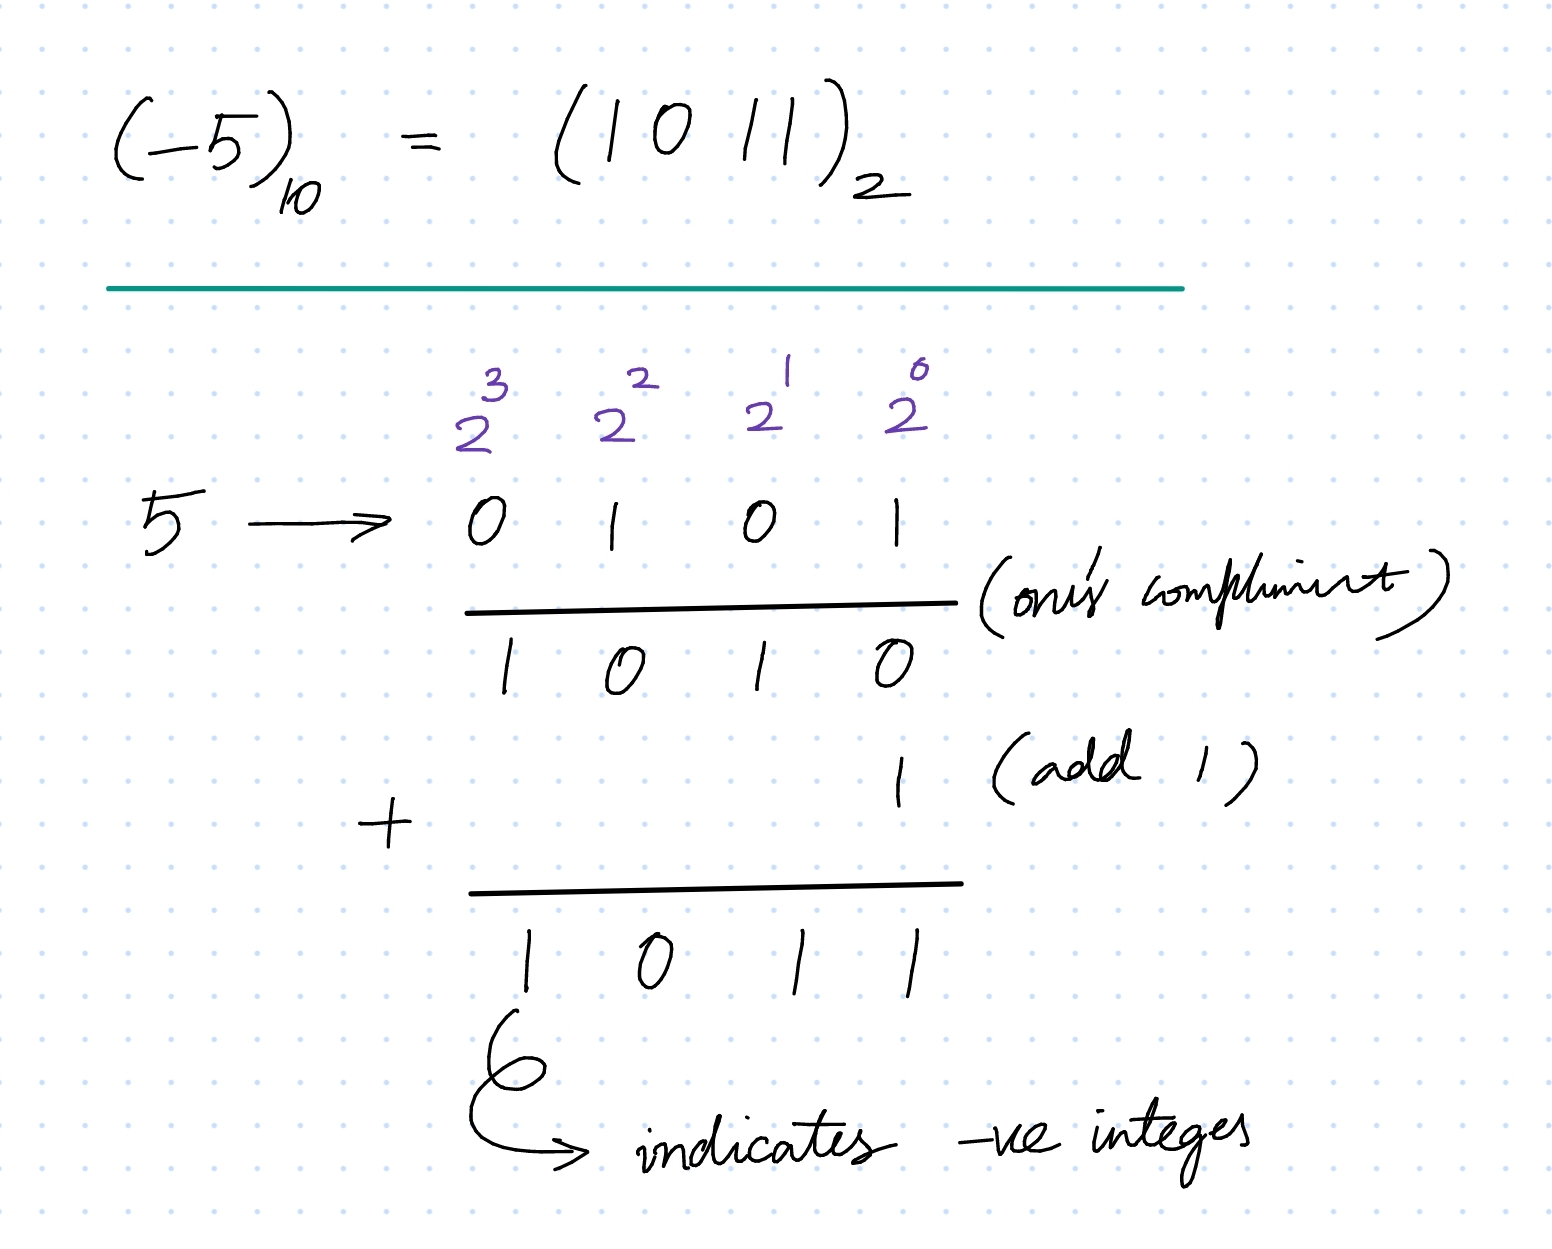 (-5)₁₀ = (1011)₂
2³ 2² 2¹ 2⁰
5 → 0 1 0 1
(one's compliment)
1 0 1 0
+ 1 (add 1)
1 0 1 1
→ indicates -ve integes